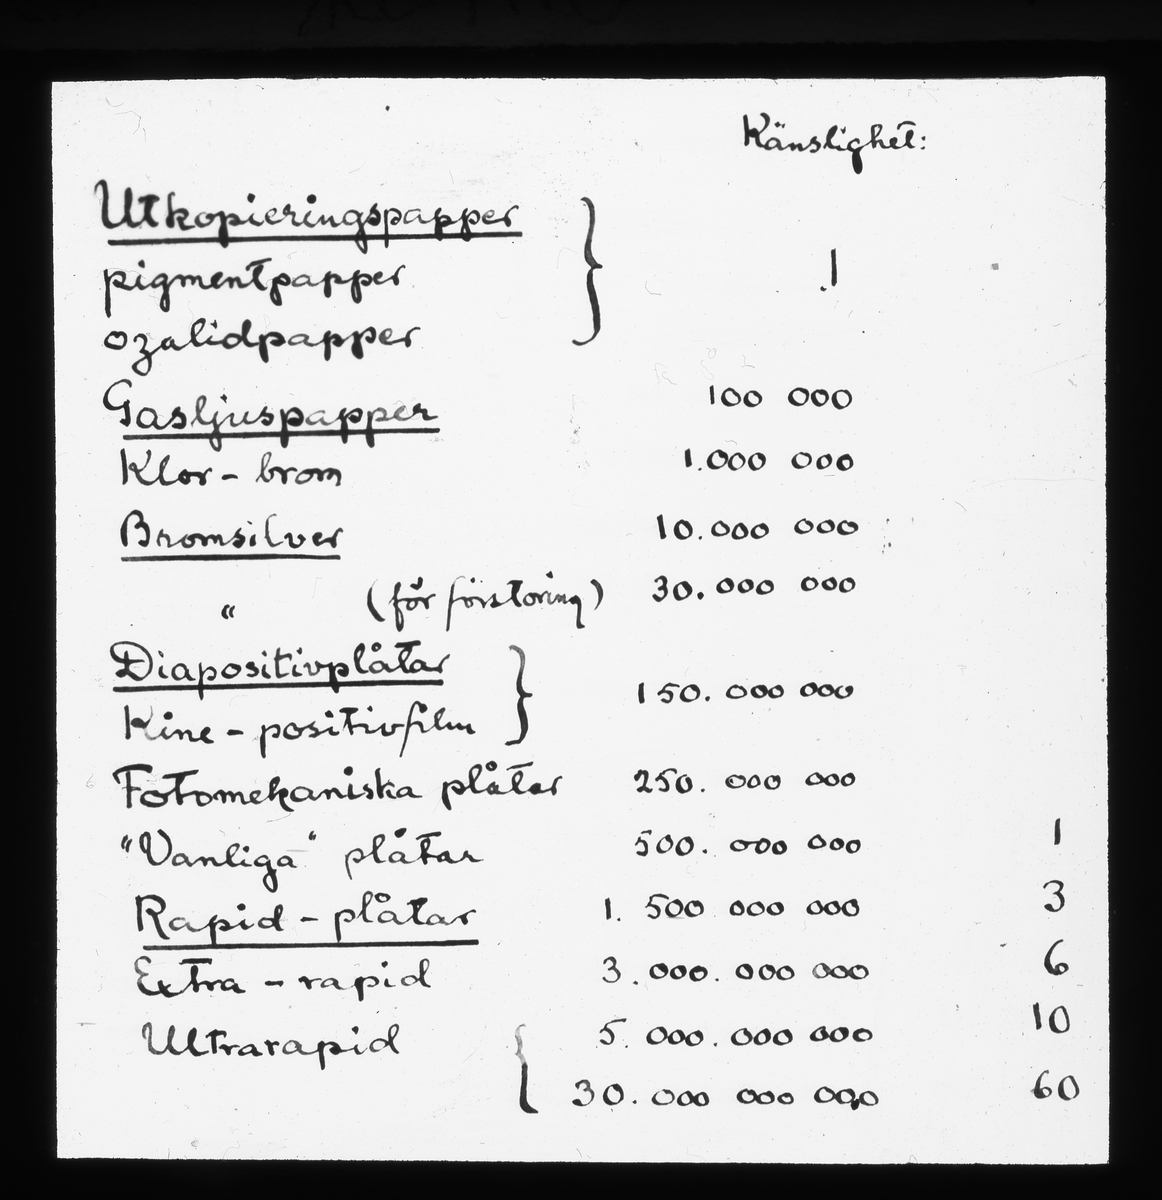 Känslighet:
Utkopieringspapper
pigmentpapper } 1
ozalidpapper
Gasljuspapper 100 000
Klor - brom 1.000 000
Bromsilver 10.000 000
" (för förstoring) 30.000 000
Diapositivplåtar } 150.000 000
Kine - positivfilm
Fotomekaniska plåtar 250.000 000
"Vanliga" plåtar 500.000 000 1
Rapid - plåtar 1.500 000 000 3
Extra - rapid 3.000.000 000 6
Ultrarapid { 5.000.000 000 10
30.000 000 000 60